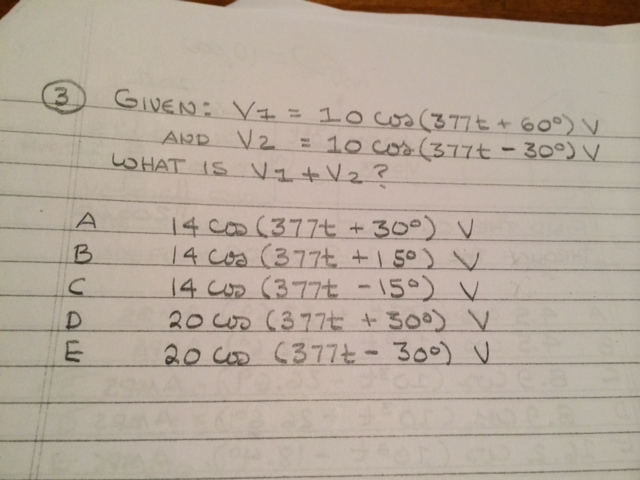 3 GIVEN: V1 = 10 cos(377t + 60°) V
AND V2 = 10 cos(377t - 30°) V
WHAT IS V1 + V2 ?
A 14 cos (377t + 30°) V
B 14 cos (377t + 15°) V
C 14 cos (377t - 15°) V
D 20 cos (377t + 30°) V
E 20 cos (377t - 30°) V